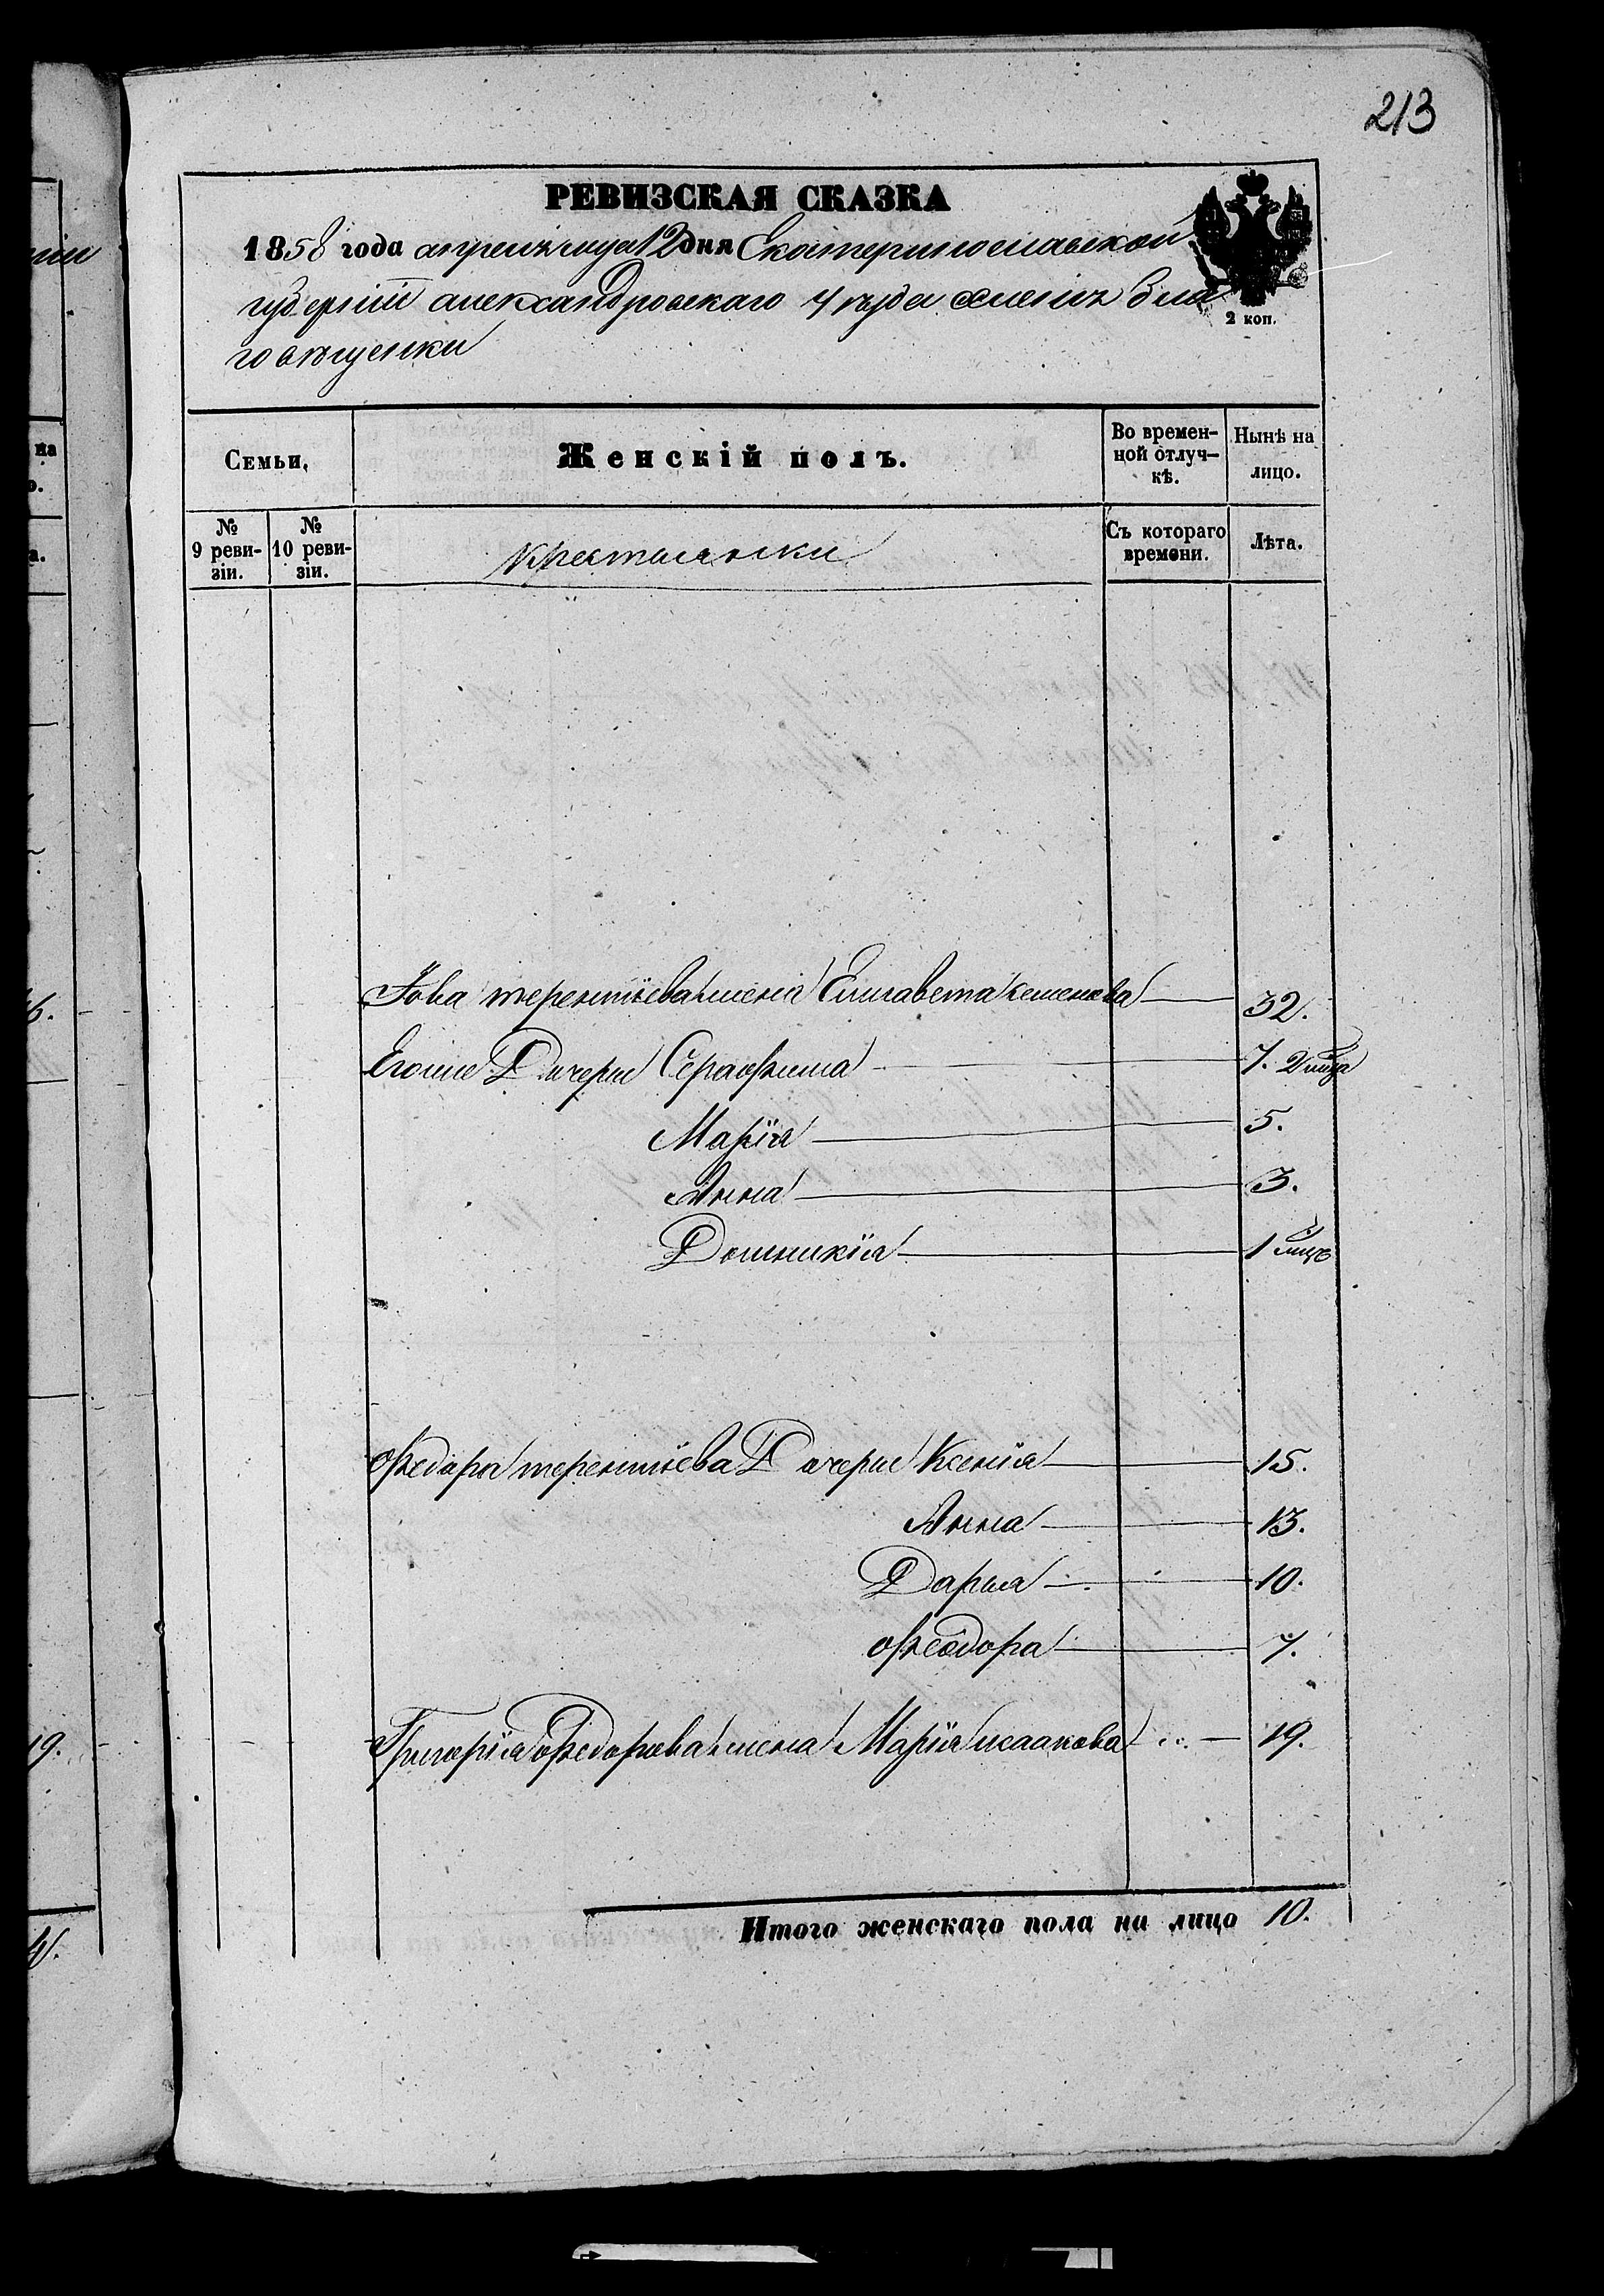 213
РЕВИЗСКАЯ СКАЗКА
1858 года апреля мца 12 дня Екатеринославской
губерніи александровскаго уѣзда селенія Бла
говѣщенки
2 коп.
Семьи,
Женскій полъ.
Во времен-
ной отлуч-
кѣ.
Нынѣ на
лицо.
№
9 реви-
зіи.
№
10 реви-
зіи.
крестьянки
Съ котораго
времени.
Лѣта.
Іова терентіева жена Елисавета семенова 32.
Егоже Дочери Серафима 7.
Марія 5.
Анна 3.
Домникія 1
Федора терентіева Дочери Ксенія 15.
Анна 13.
Дарья 10.
Феодора 7.
Григорія Федорова жена Марія исаакова 19.
Итого женскаго пола на лицо 10.